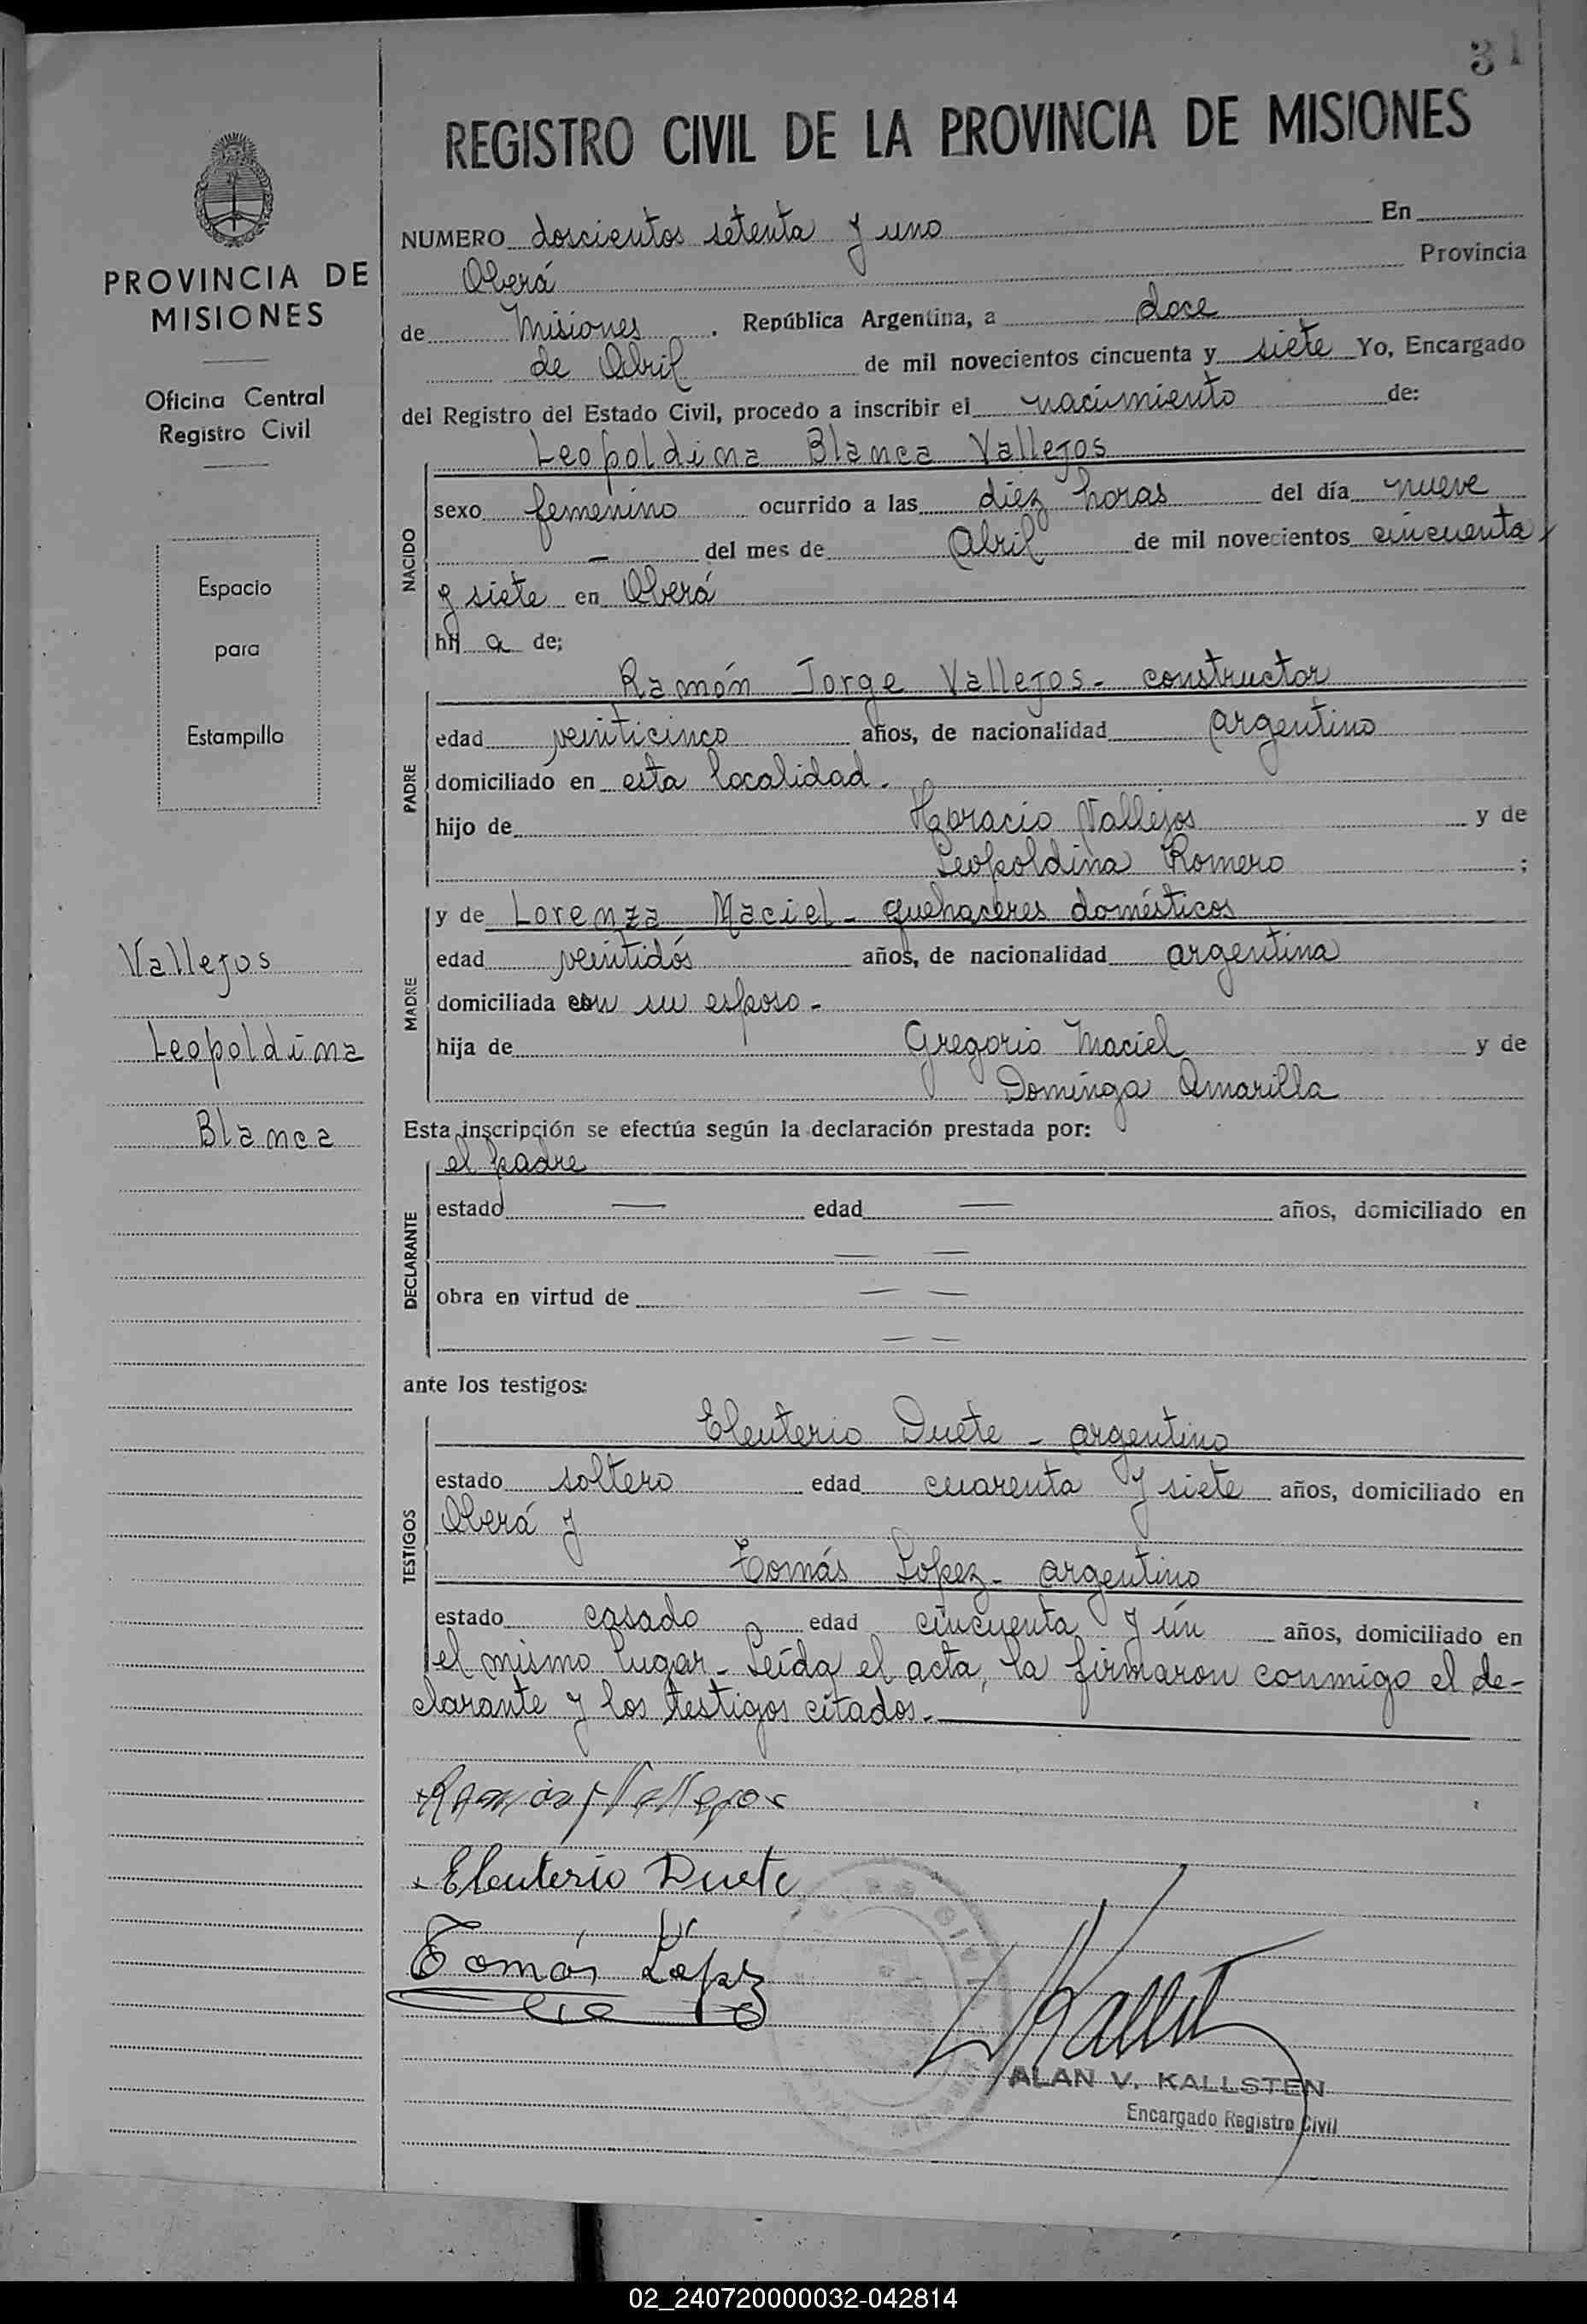 31
REGISTRO CIVIL DE LA PROVINCIA DE MISIONES
PROVINCIA DE
MISIONES
Oficina Central
Registro Civil
Espacio
para
Estampilla
Vallejos
Leopoldina
Blanca
NUMERO doscientos setenta y uno En
Oberá Provincia
de Misiones . República Argentina, a doce
de Abril de mil novecientos cincuenta y siete Yo, Encargado
del Registro del Estado Civil, procedo a inscribir el nacimiento de:
NACIDO
Leopoldina Blanca Vallejos
sexo femenino ocurrido a las diez horas del día nueve
— del mes de Abril de mil novecientos cincuenta
y siete en Oberá
hij a de;
PADRE
Ramón Jorge Vallejos - constructor
edad veinticinco años, de nacionalidad argentino
domiciliado en esta localidad.
hijo de Horacio Vallejos y de
Leopoldina Romero ;
MADRE
y de Lorenza Maciel - quehaceres domésticos
edad veintidós años, de nacionalidad argentina
domiciliada con su esposo -
hija de Gregorio Maciel y de
Dominga Amarilla
Esta inscripción se efectúa según la declaración prestada por:
DECLARANTE
el padre
estado — edad — años, domiciliado en
— —
obra en virtud de — —
— —
ante los testigos:
TESTIGOS
Eleuterio Duete - argentino
estado soltero edad cuarenta y siete años, domiciliado en
Oberá y
Tomás Lopez - argentino
estado casado edad cincuenta y ún años, domiciliado en
el mismo lugar - Leída el acta, la firmaron conmigo el de-
clarante y los testigos citados.-
Ramón J Vallejos
Eleuterio Duete
Tomás López
ALAN V. KALLSTEN
Encargado Registro Civil
02_240720000032-042814